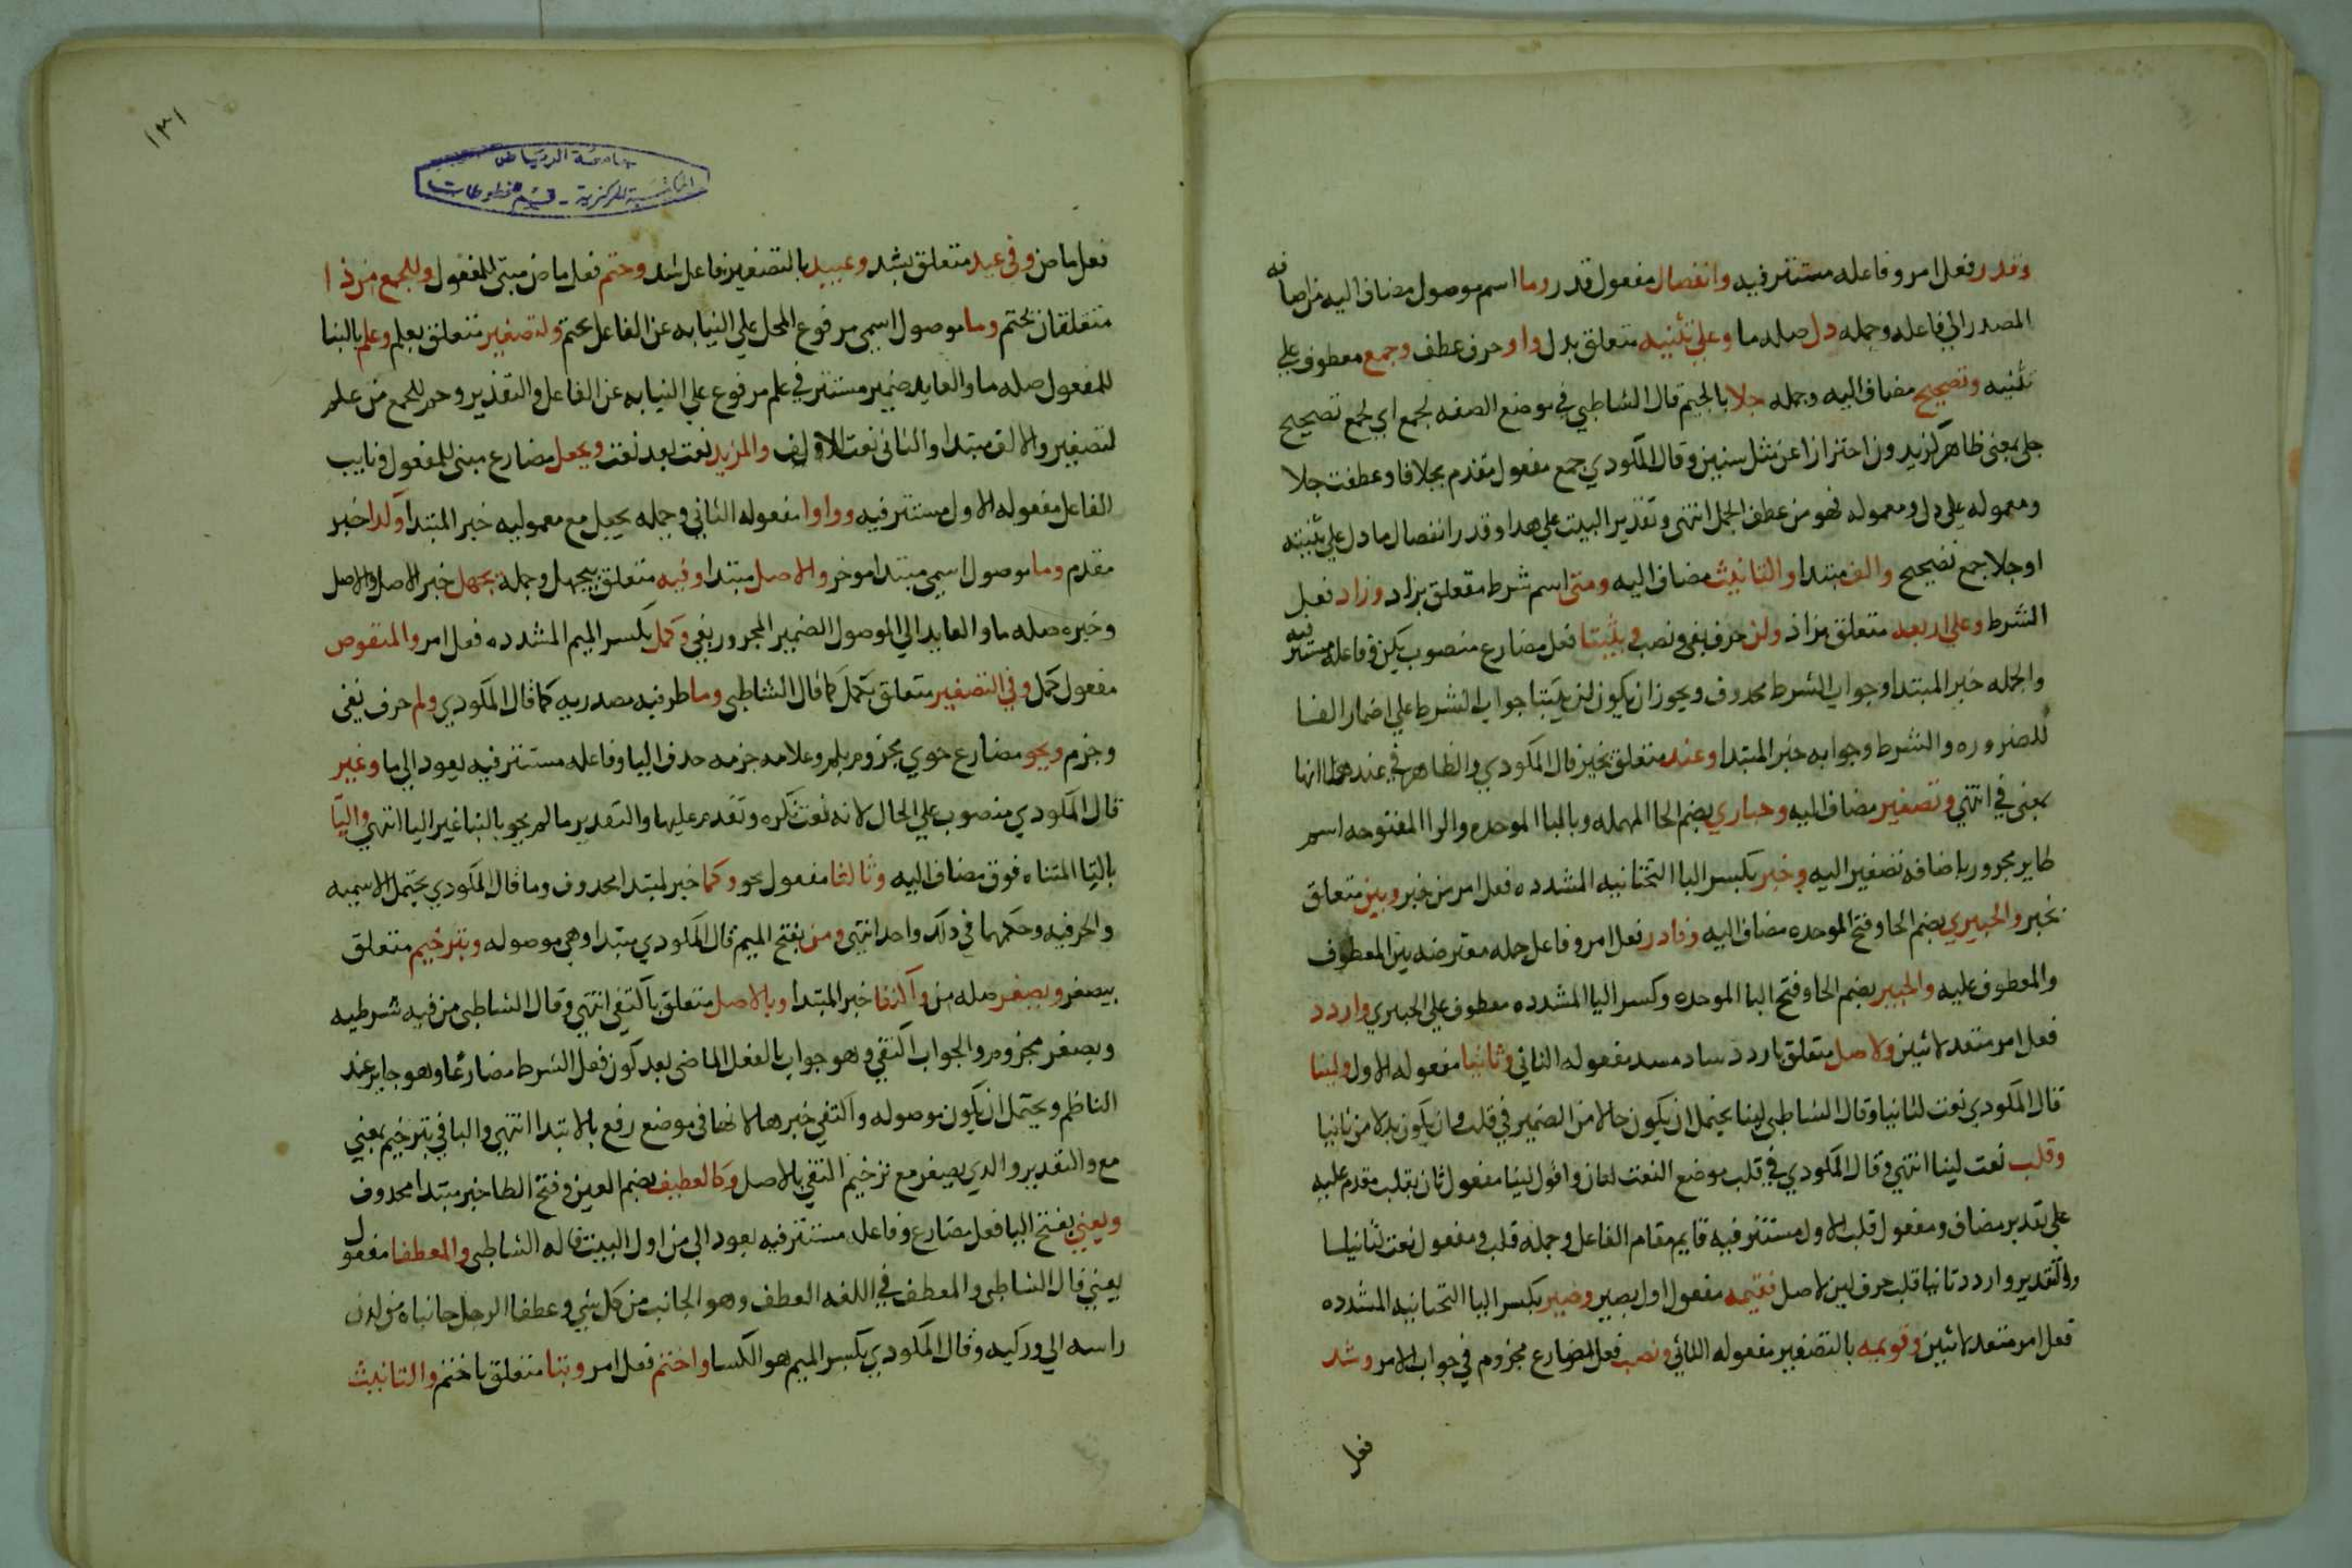 وقدر فعل امر وفاعله مستتر فيه وانفصال مفعول قدر وما اسم موصول مضاف اليه من اضافه
المصدر الي فاعله وجمله دل صله ما وعلي تثنيه متعلق بدل واو حرف عطف وجمع معطوف علي
تثنيه وتصحيح مضاف اليه وجمله جلا بالجيم قال الشاطبي في موضع الصفه لجمع اي لجمع تصحيح
جلي بمعني ظاهر كزيدون احترازا عن مثل سنين وقال المكودي جمع مفعول مقدم بجلا فا وعطفت جلا
ومعموله علي دل ومعموله فهو من عطف الجمل انتهي وتقدير البيت علي هذا وقدر انفصال ما دل علي تثنيته
اوجلا جمع تصحيح والف مبتدا والتانيث مضاف اليه ومتي اسم شرط متعلق بزاد وزاد فعل
الشرط وعلي اربعه متعلق بزاد ولن حرف نفي ونصب ويثبتا فعل مضارع منصوب بلن وفاعله مستتر فيه
والجمله خبر المبتدا وجواب الشرط محدوف ويجوز ان يكون لن يثبتا جواب الشرط علي اضمار الفا
للضروره والشرط وجوابه خبر المبتدا وعند متعلق بخير قال المكودي والظاهر في عند هنا انها
بمعني في انتهي وتصغير مضاف اليه وحباري بضم الحا المهمله وبالبا الموحده والرا المفتوحه اسم
طاير مجرور باضافه تصغير اليه وخير بكسر اليا التحتانيه المشدده فعل امر من خير وبين متعلق
بخير والحبيري بضم الحا وفتح الموحده مضاف اليه وفادر فعل امر وفاعل جمله معترضه بين المعطوف
والمعطوف عليه والحبير بضم الحا وفتح البا الموحده وكسر اليا المشدده معطوف علي الحبيري واردد
فعل امر متعد لاثنين ولاصل متعلق باردد ساد مسد مفعوله الثاني وثانيا مفعوله الاول ولينا
قال المكودي نعت لثانيا وقال الشاطبي لينا يحتمل ان يكون حالا من الضمير في قلب وان يكون بدلا من ثانيا
وقلب نعت لينا انتهي وقال المكودي في قلب موضع النعت لثان واقول لينا مفعول ثان بقلب مقدم عليه
علي تقدير مضاف ومفعول قلب الاول مستتر فيه قايم مقام الفاعل وجمله قلب ومفعول نعت لثانيا
والتقدير واردد ثانيا قلب حرف لين لاصل فقيمه مفعول اول بصير وصير بكسر اليا التحتانيه المشدده
فعل امر متعد لاثنين وقويمه بالتصغير مفعوله الثاني وتصب فعل المضارع مجزوم في جواب الامر وشد
فعل
١٣١
جامعة الرياض
المكتبة المركزية - قسم المخطوطات
فعل ماض وفي عيد متعلق بشد وعييد بالتصغير فاعل شد وحتم فعل ماض مبني للمفعول وللجمع من ذا
متعلقان بحتم وما موصول اسمي مرفوع المحل علي النيابه عن الفاعل بحتم ولتصغير متعلق بعلم وعلم بالبنا
للمفعول صله ما والعايد ضمير مستتر في علم مرفوع علي النيابه عن الفاعل والتقدير وحتم للجمع من علم
لتصغير والالف مبتدا والثاني نعت الالف والمزيد نعت بعد نعت ويجعل مضارع مبني للمفعول ونايب
الفاعل مفعوله الاول مستتر فيه وواوا مفعوله الثاني وجمله يجعل مع معموليه خبر المبتدا وكذا خبر
مقدم وما موصول اسمي مبتدا موخر والاصل مبتدا وفيه متعلق بيجهل وجمله يجهل خبر الاصل والاصل
وخبره صله ما والعايد الي الموصول الضمير المجرور بفي وكمل بكسر الميم المشدده فعل امر والمنقوص
مفعول كمل وفي التصغير متعلق بكمل كما قال الشاطبي وما ظرفيه مصدريه كما قال المكودي ولم حرف نفي
وجزم ويحو مضارع حوي مجزوم بلم وعلامه جزمه حدف اليا وفاعله مستتر فيه يعود الي ما وغير
قال المكودي منصوب علي الحال لانه نعت نكره وتقدم عليها والتقدير ما لم يحو بالتا غير اليا انتهي والتا
بالتا المثناه فوق مضاف اليه وثالثا مفعول يحو وكما خبر لمبتدا محدوف وما قال المكودي يحتمل الاسميه
والحرفيه وحكمهما في ذلك واحد انتهي ومن بفتح الميم قال المكودي مبتدا وهي موصوله وبترخيم متعلق
بيصغر ويصغر صله من واكتفا خبر المبتدا وبالاصل متعلق باكتفي انتهي وقال الشاطبي من فيه شرطيه
ويصغر مجزوم والجواب اكتفي وهو جواب بالفعل الماضي بعد كون فعل الشرط مضارعا وهو جايز عند
الناظم ويحتمل ان يكون موصوله واكتفي خبرها لانها في موضع رفع بالابتدا انتهي والبا في بترخيم بمعني
مع والتقدير والدي يصغر مع ترخيم اكتفي بالاصل وكالعطيف بضم العين وفتح الطا خبر مبتدا محدوف
ويعني بفتح اليا فعل مضارع وفاعله مستتر فيه يعود الي من اول البيت قاله الشاطبي والمعطفا مفعول
يعني قال الشاطبي والمعطف في اللغه العطف وهو الجانب من كل شي وعطفا الرجل جانباه من لدن
راسه الي وركيه وقال المكودي بكسر الميم هو الكسا واختم فعل امر وبتا متعلق باختم والتانيث